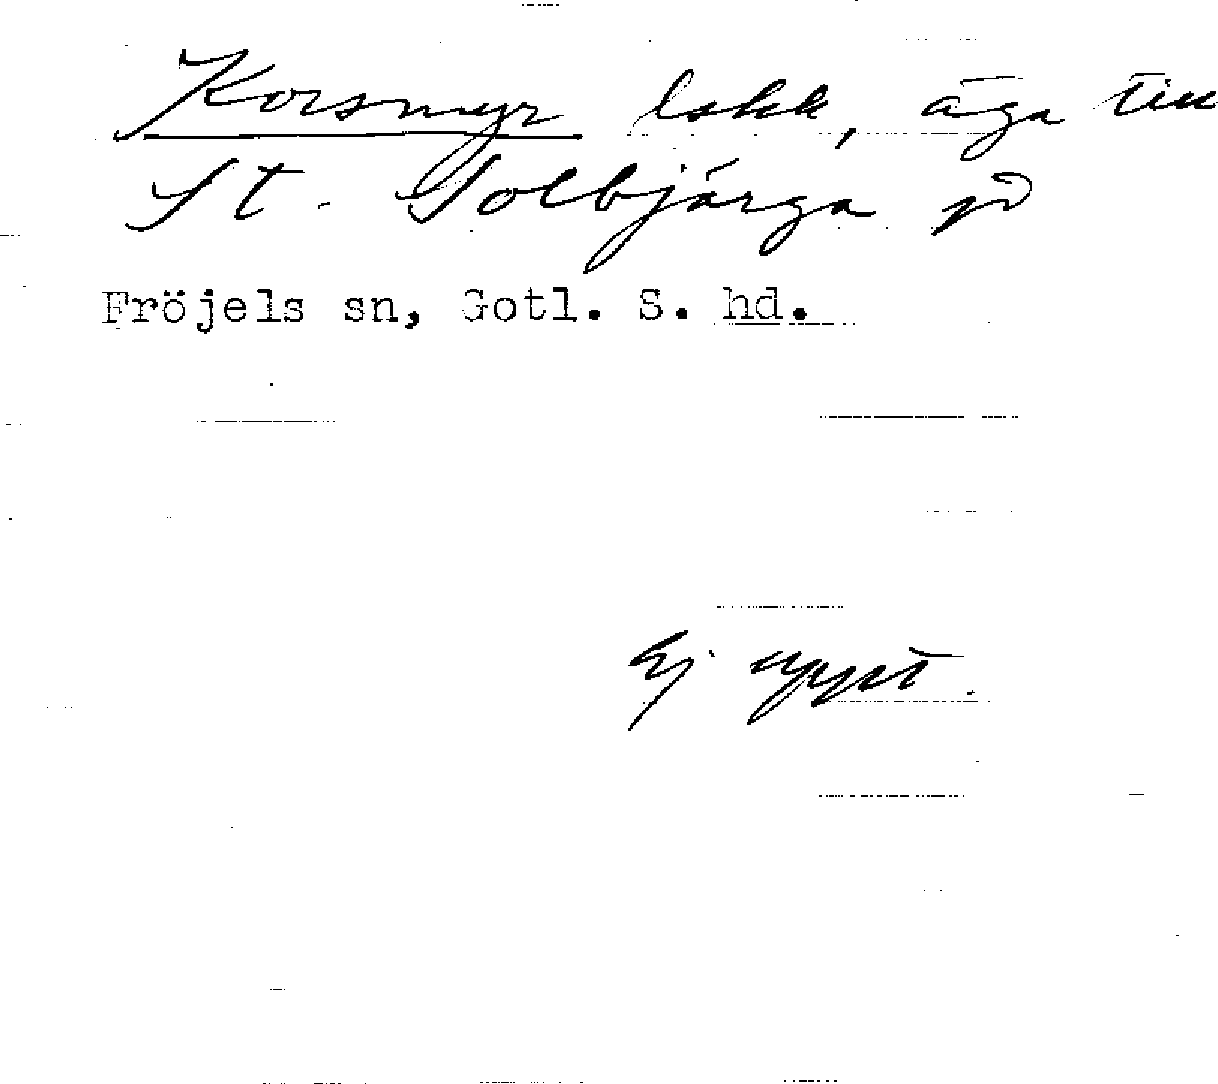 Korsmyr lokk, äga till
St. Solbjärga på
Fröjels sn, Gotl. S. hd.
Ej uppt.